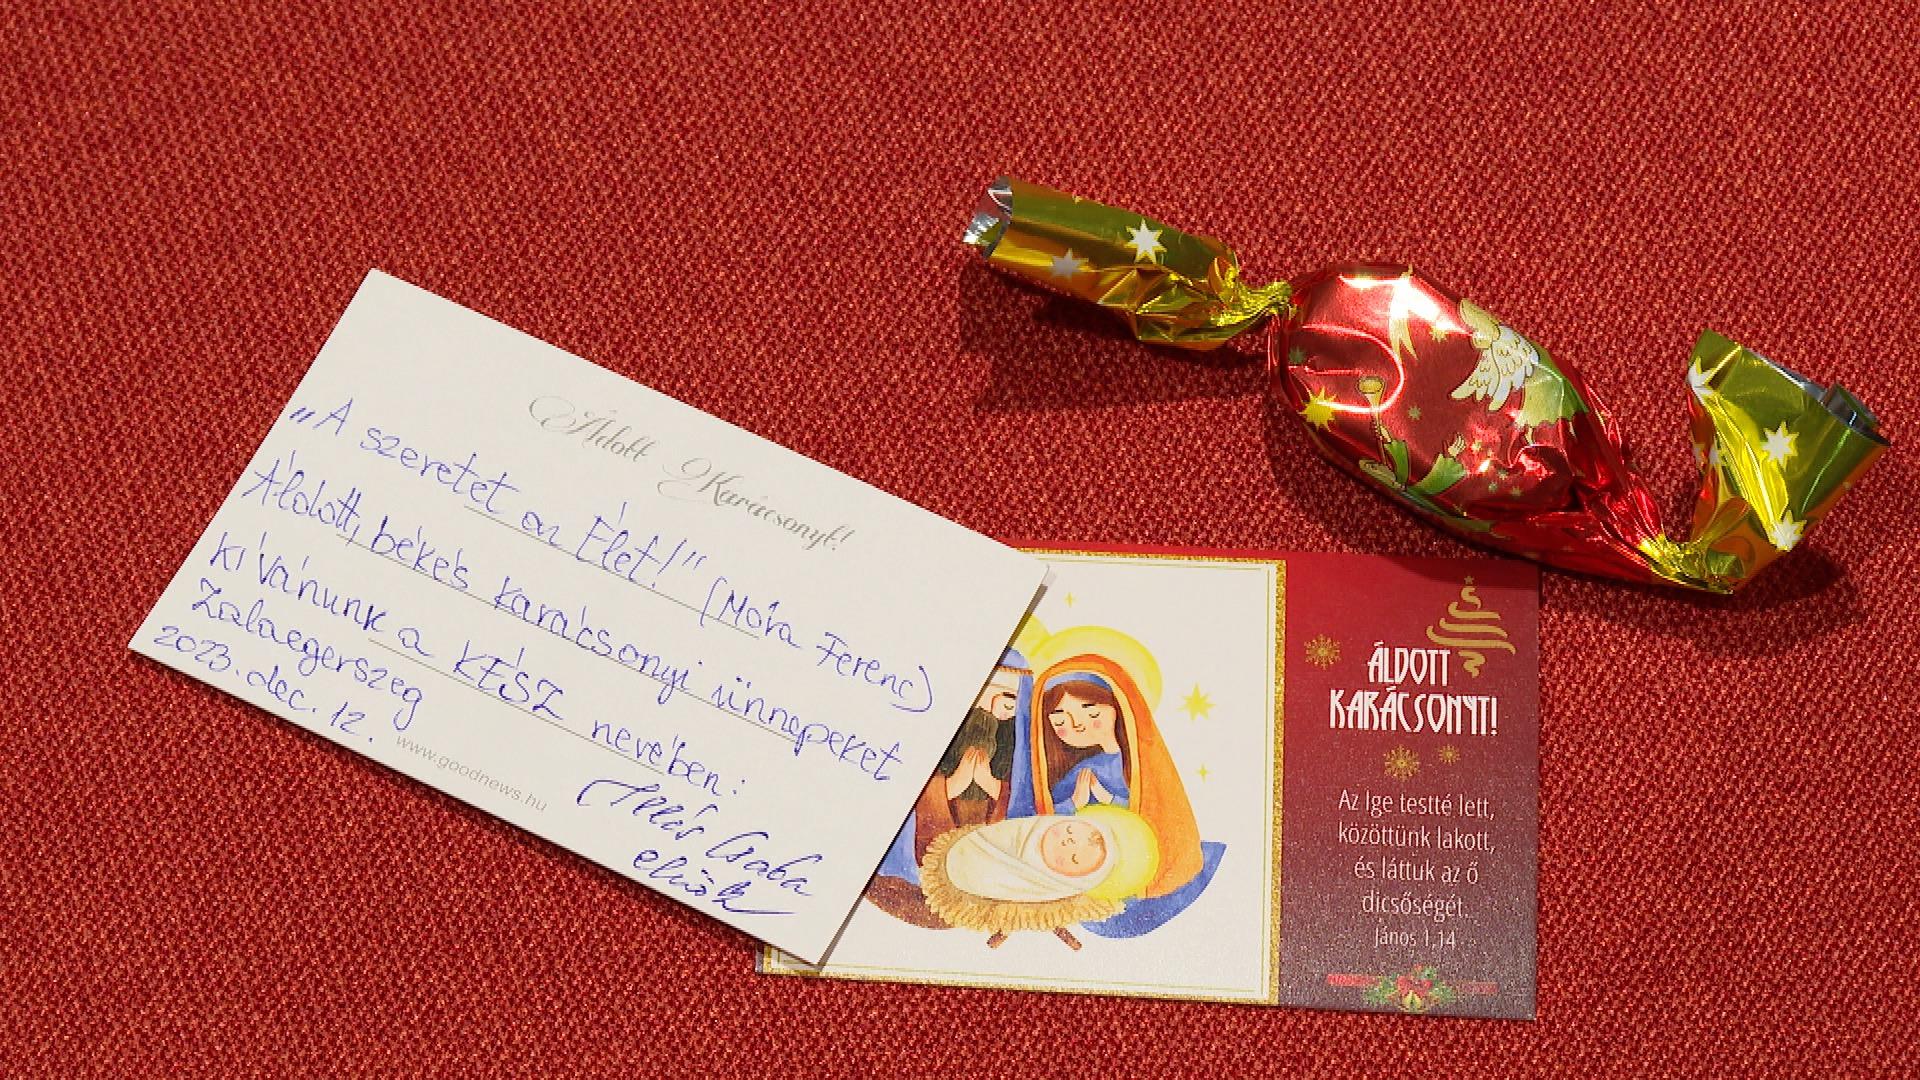 Áldott Karácsonyt!
„A szeretet az Élet!" (Móra Ferenc)
Áldott, békés karácsonyi ünnepeket
kívánunk a KÉSZ nevében:
Zalaegerszeg
2023. dec. 12.
Illés Csaba
elnök
www.goodnews.hu
ÁLDOTT
KARÁCSONYT!
Az Ige testté lett,
közöttünk lakott,
és láttuk az ő
dicsőségét.
János 1,14